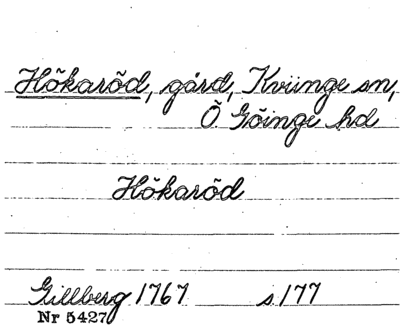 Hökaröd, gård, Kviinge sn,
Ö. Göinge hd
Hökaröd
Gillberg 1767 s. 177
Nr 5427